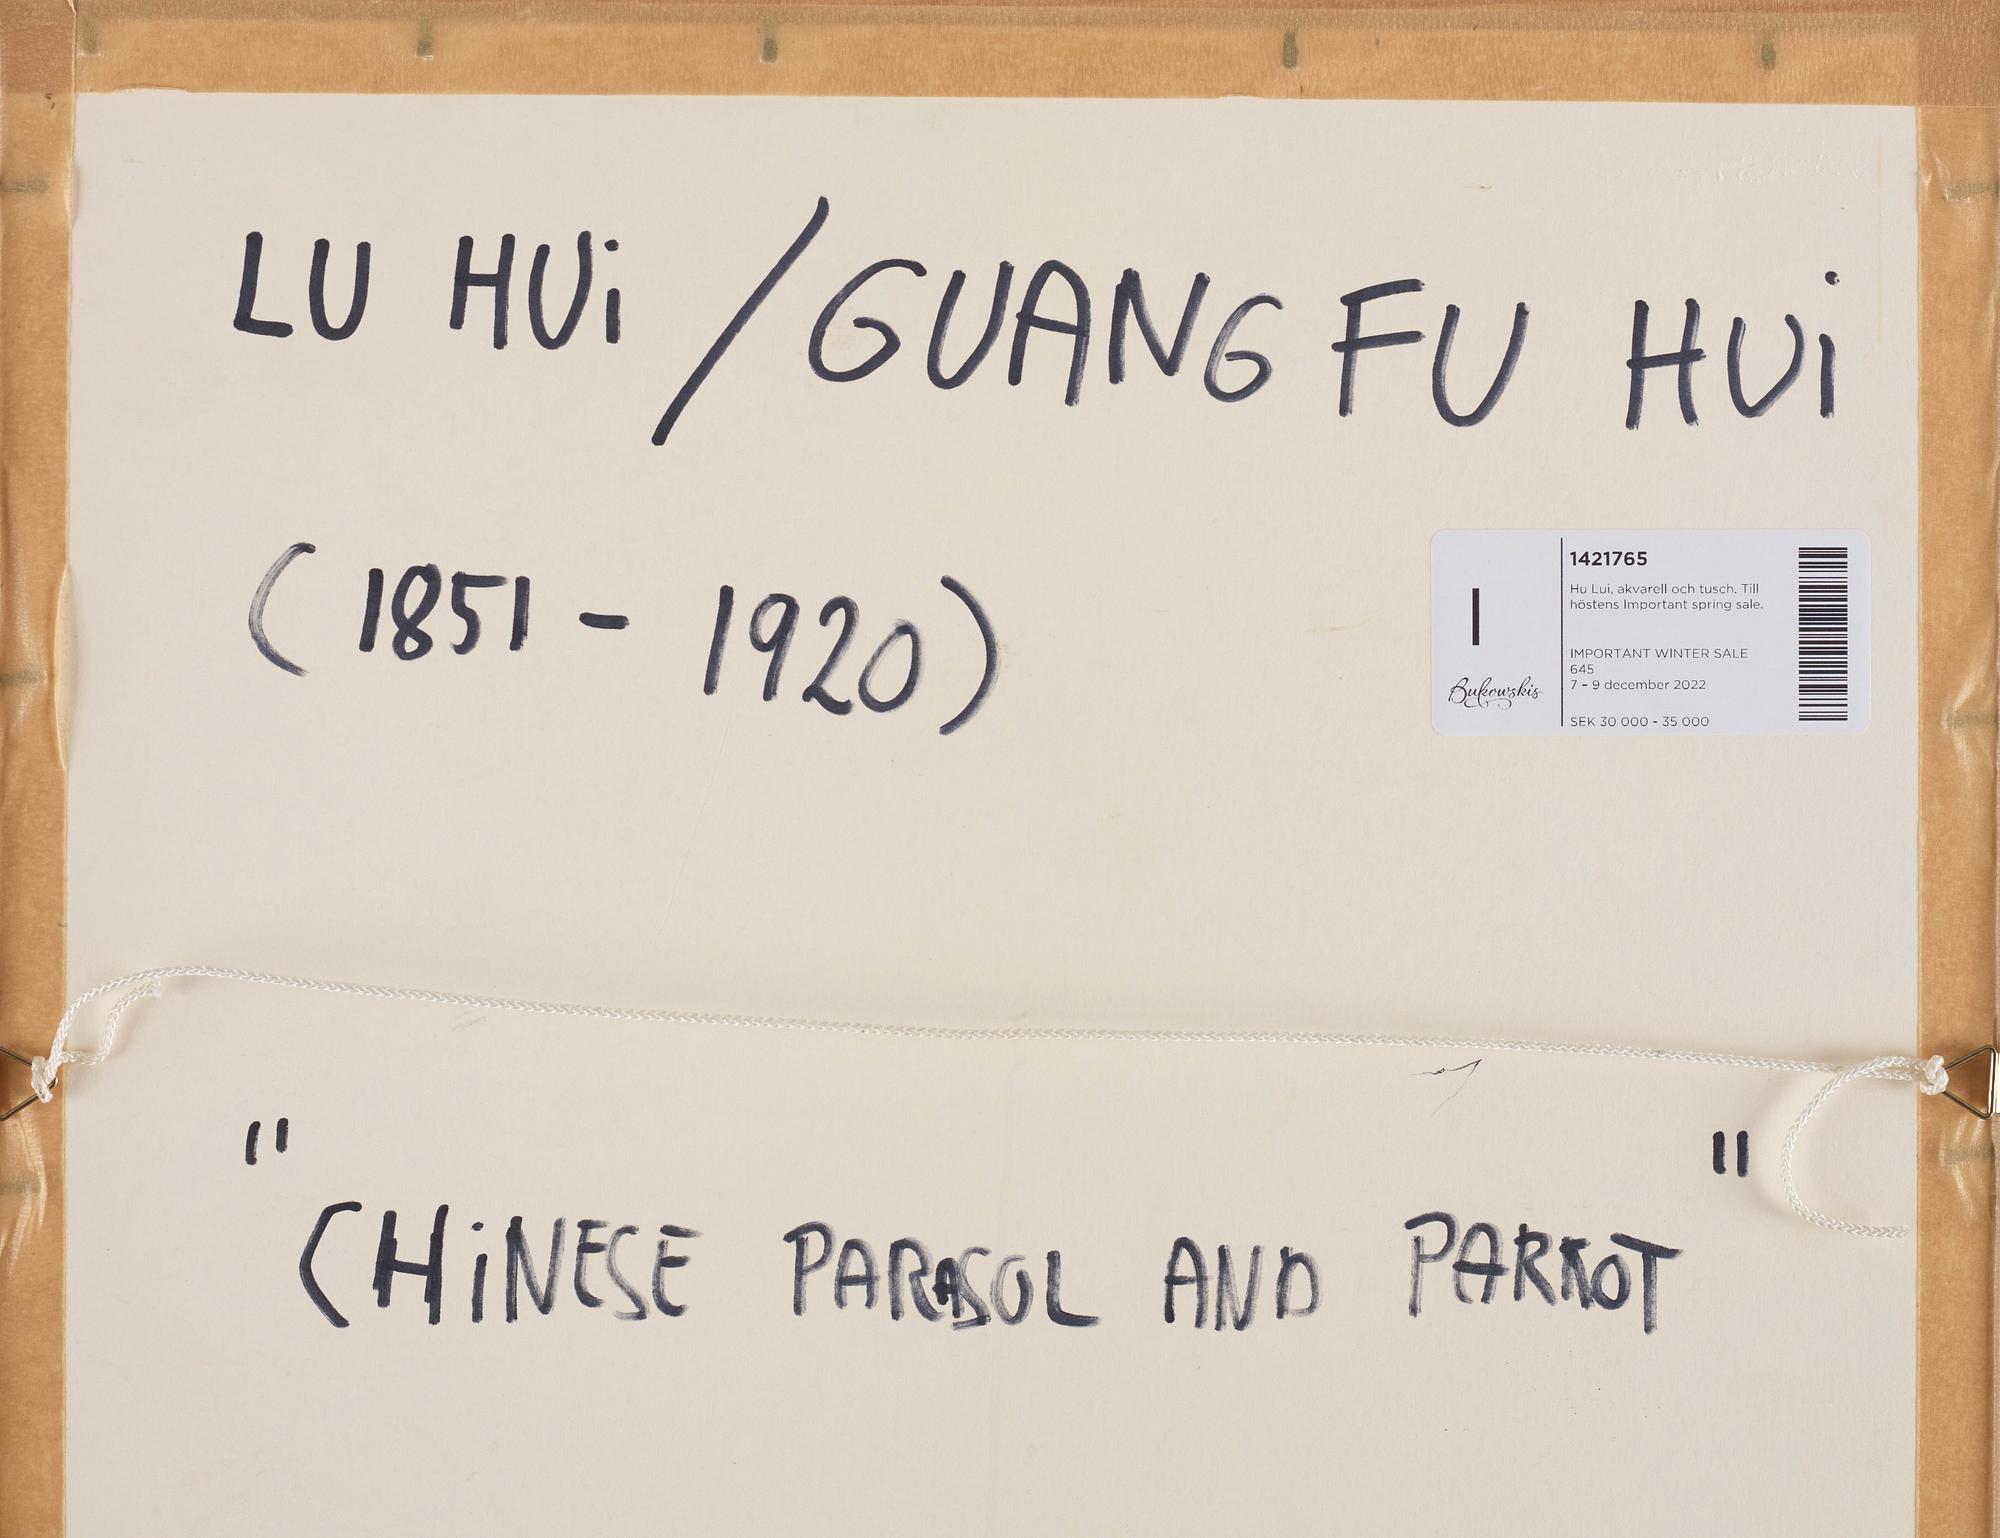 LU HUi / GUANG FU HUi
(1851 - 1920)
1421765
Hu Lui, akvarell och tusch. Till
höstens Important spring sale.
IMPORTANT WINTER SALE
645
7 – 9 december 2022
SEK 30 000 - 35 000
I
Bukowskis
"CHiNESE PARASOL AND PARROT"